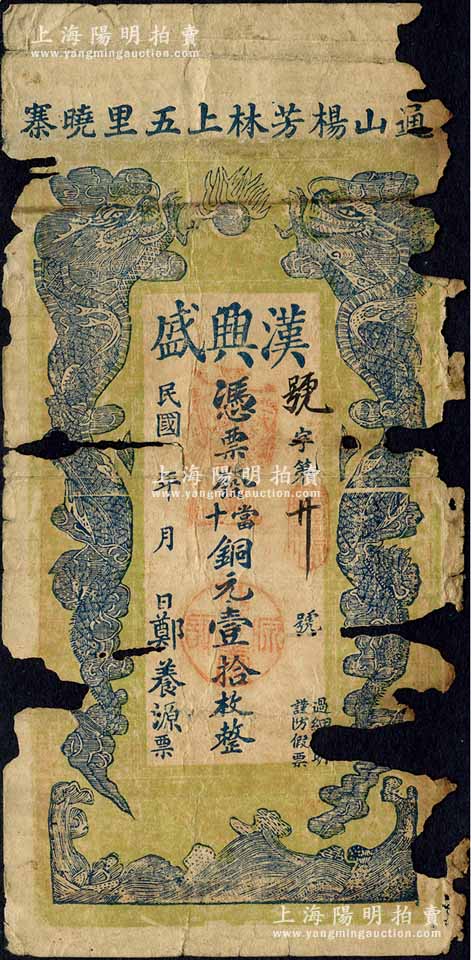 上海陽明拍賣
www.yangmingauction.com
通山楊芳林上五里曉寨
漢興盛
號字第廿號
憑票
當十銅元壹拾枚整
民國 年 月 日鄭養源票
過細
謹防假票
上海陽明拍賣
www.yangmingauction.com
上海陽明拍賣
www.yangmingauction.com